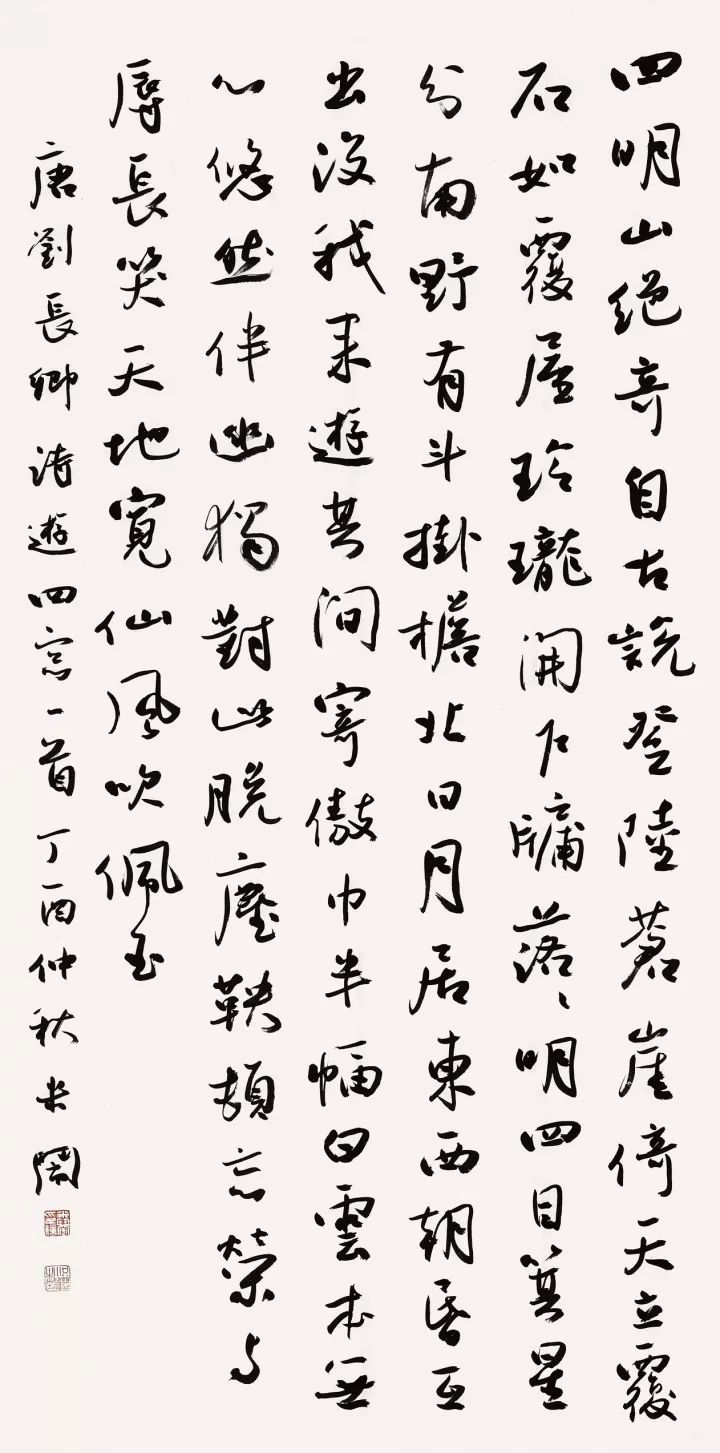 四明山絕奇自古說登陸蒼崖倚天立覆
石如覆屋玲瓏開户牖落〻明四目箕星
分南野有斗掛檐北日月居東西朝昏互
出沒我来遊其間寄傲巾半幅白雲本無
心悠然伴幽獨對此脫塵鞅頓忘榮与
辱長笑天地寬仙風吹佩玉
唐劉長卿詩遊四窓一首丁酉仲秋米鬧